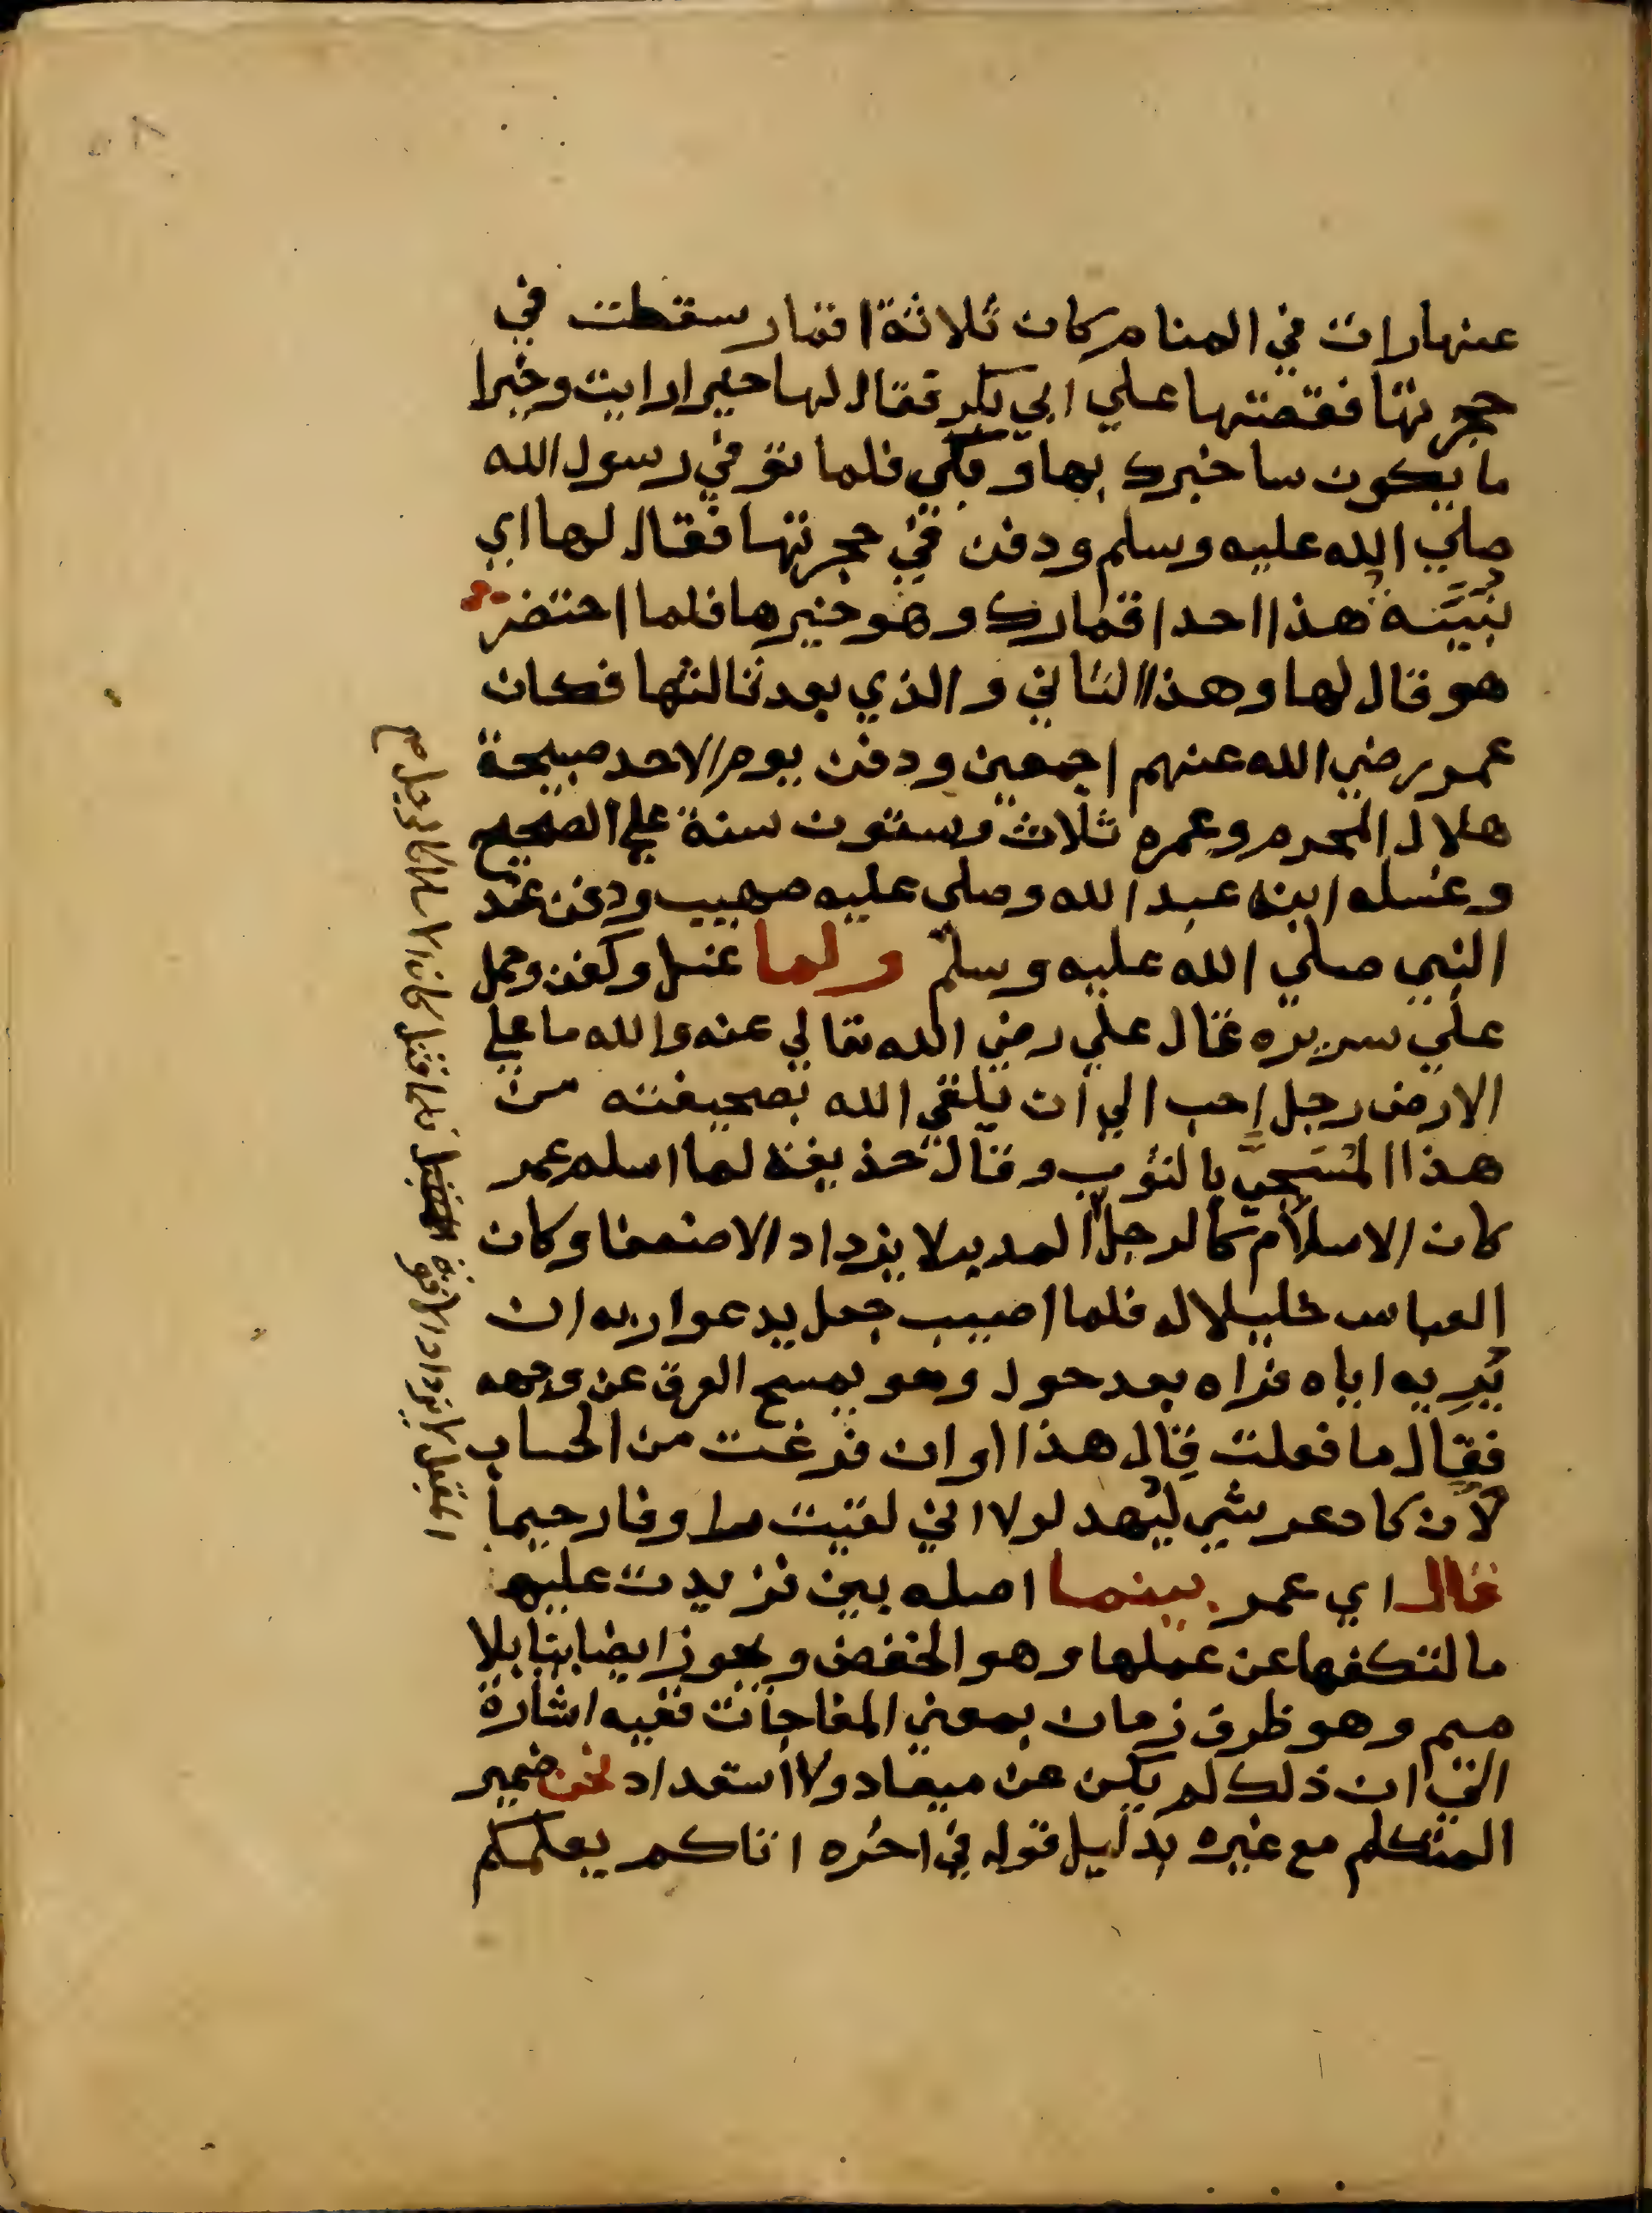 عنها رات في المنام كان ثلاثة اقمار سقطت في
حجرتها فقصتها علي ابي بكر فقال لها خيرا رايت وخيرا
ما يكون ساخبرك بها وبكي فلما توفي رسول الله
صلي الله عليه وسلم ودفن في حجرتها فقال لها اي
بنيّة هذا احد اقمارك وهو خيرها فلما احتضر
هو قال لها وهذا الثاني والذي بعد ثالثها فكان
عمر رضي الله عنهم اجمعين ودفن يوم الاحد صبيحة
هلال المحرم وعمره ثلاث وستون سنة علي الصحيح
وغسله ابنه عبد الله وصلي عليه صهيب ودفن عند
النبي صلي الله عليه وسلم ولما غسل وكفن وحمل
علي سريره قال علي رضي الله تعالي عنه والله ما علي
الارض رجل احب الي ان يلقي الله بصحيفته من
هذا المسجيّ بالثوب وقال حذيفة لما اسلم عمر
كان الاسلام كالرجل المدبر لا يزداد الا ضعفا وكان
العباس خليلا له فلما اصيب جعل يدعوا ربه ان
يُرِيه اياه فراه بعد حول وهو يمسح العرق عن وجهه
فقال ما فعلت قال هذا اوان فرغت من الحساب
لان كاد عرشي ليُهد لولا اني لقيت روفا رحيما
قال اي عمر بينما اصله بين زيدت عليه
ما لتكفها عن عملها وهو الخفض ويجوز ايضا بينا بلا
ميم وهو ظرف زمان بمعني المفاجات ففيه اشارة
الي ان ذلك لم يكن عن ميعاد ولا استعداد نحن ضمير
المتكلم مع غيره بدليل قوله في اخره اتاكم يعلمكم
المقبل لا يزداد الا قوة فلما قتل كان الاسلام كالرجل